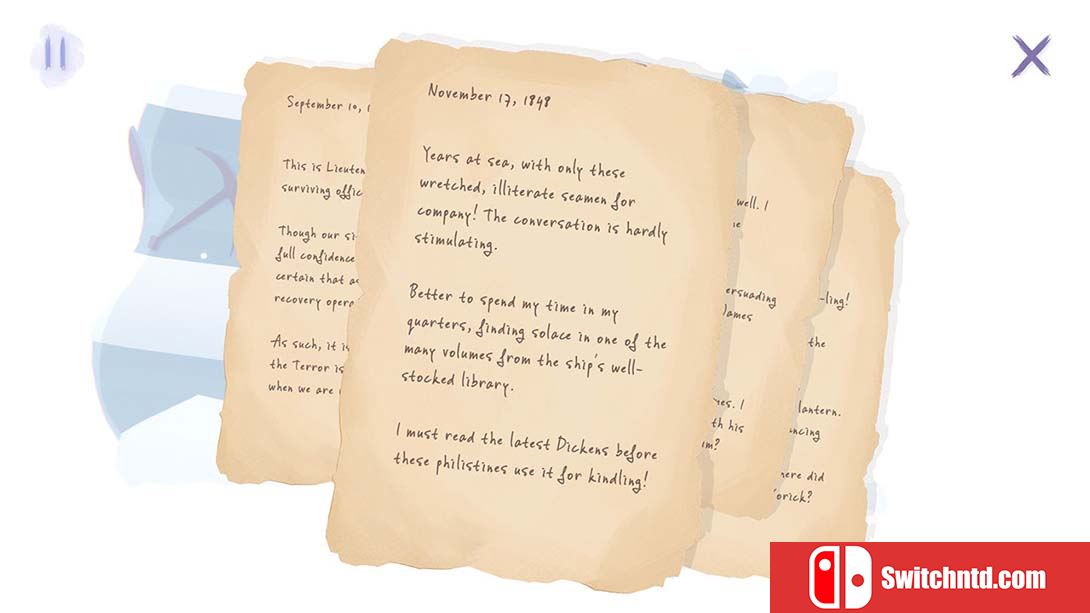 September 10,
This is Lieuten
surviving offic
Though our si
full confidence
certain that as
recovery opera
As such, it is
the Terror is
when we are
November 17, 1848
Years at sea, with only these
wretched, illiterate seamen for
company! The conversation is hardly
stimulating.
Better to spend my time in my
quarters, finding solace in one of the
many volumes from the ship's well-
stocked library.
I must read the latest Dickens before
these philistines use it for kindling!
well. I
ne
ersuading
James
mes. I
th his
um?
-ling!
the
lantern.
ancing
here did
orick?
Switchntd.com